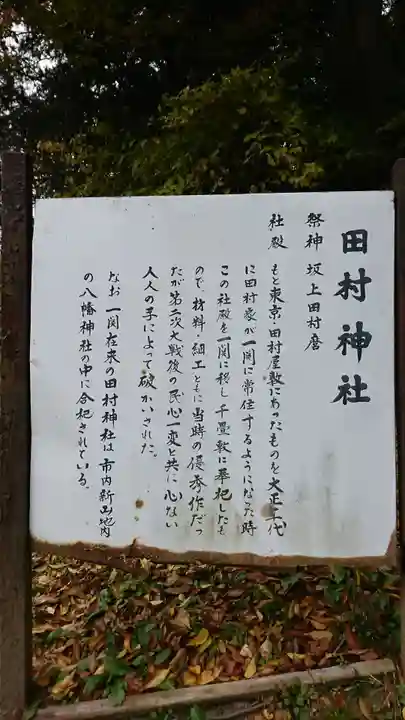 田村神社
祭神 坂上田村麿
社殿 もと東京・田村屋敷にあったものを大正二代
に田村家が一関に常住するようになった時
この社殿を一関に移し千畳敷に奉祀したも
ので材料、細工ともに当時の優秀作だっ
たが第二次大戦後の民心一変と共に心ない
人人の手によって破かいされた。
なお一関在来の田村神社は市内新山地内
の八幡神社の中に合祀されている。